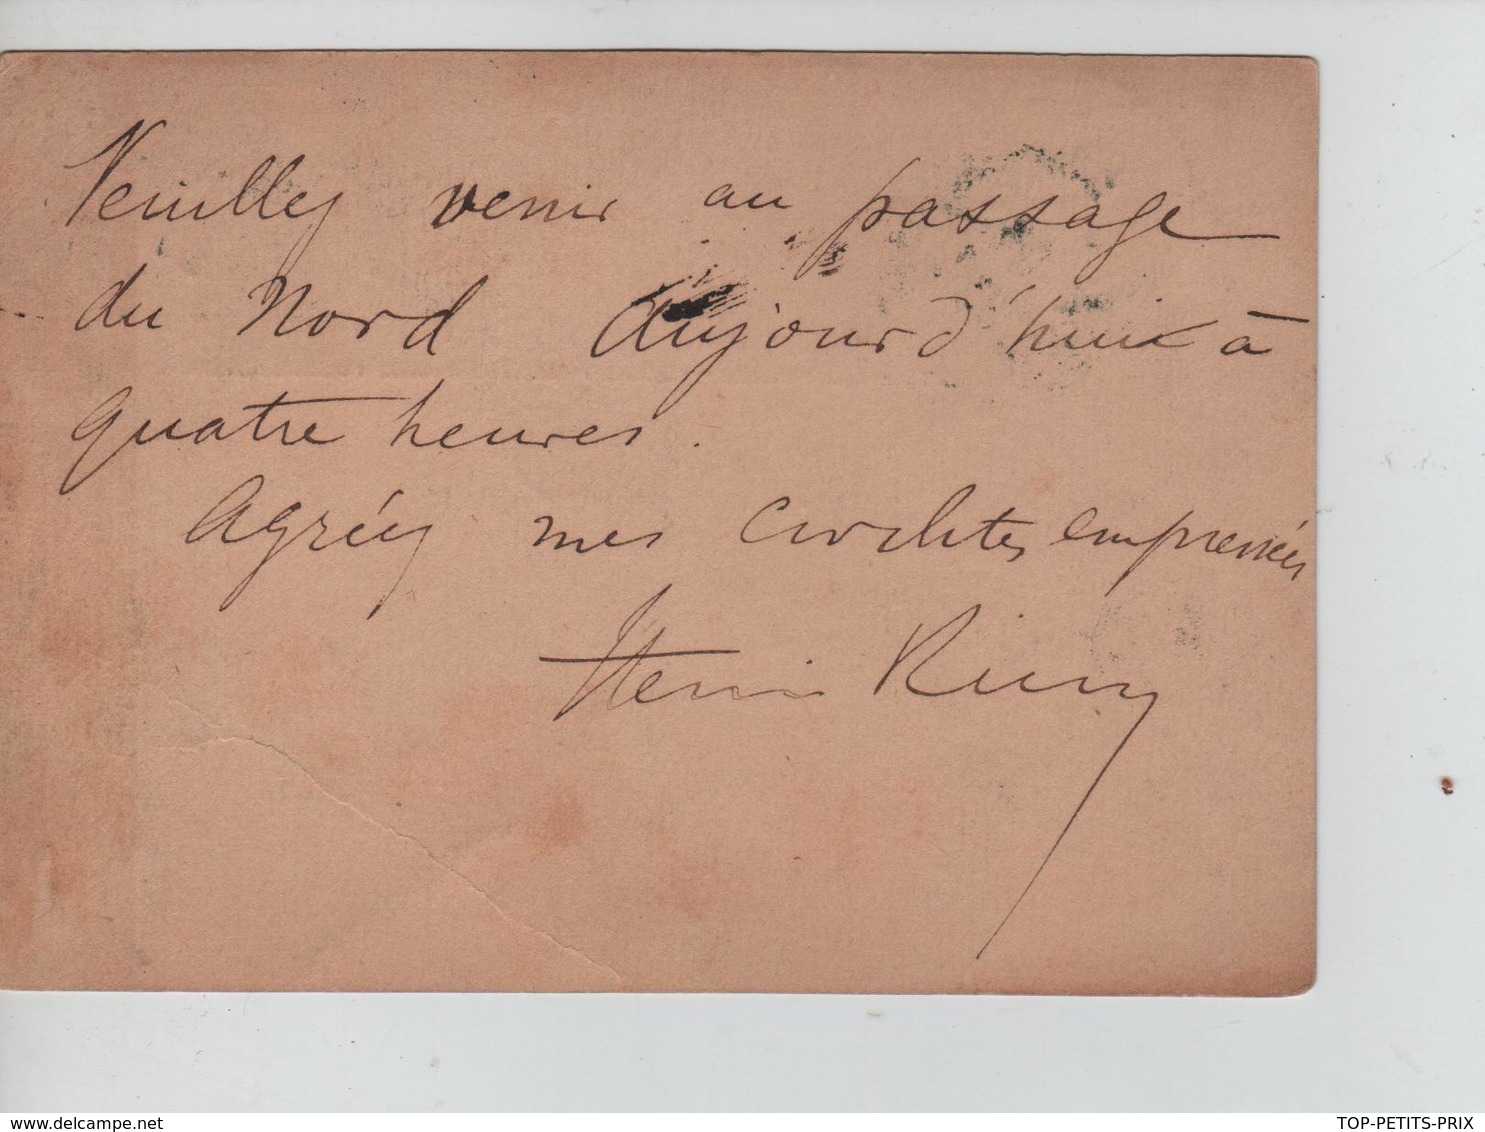 Veuillez venir au passage
du Nord aujourd'hui à
quatre heures.
Agréez mes civilités empressées
Henri
www.delcampe.net
TOP-PETITS-PRIX